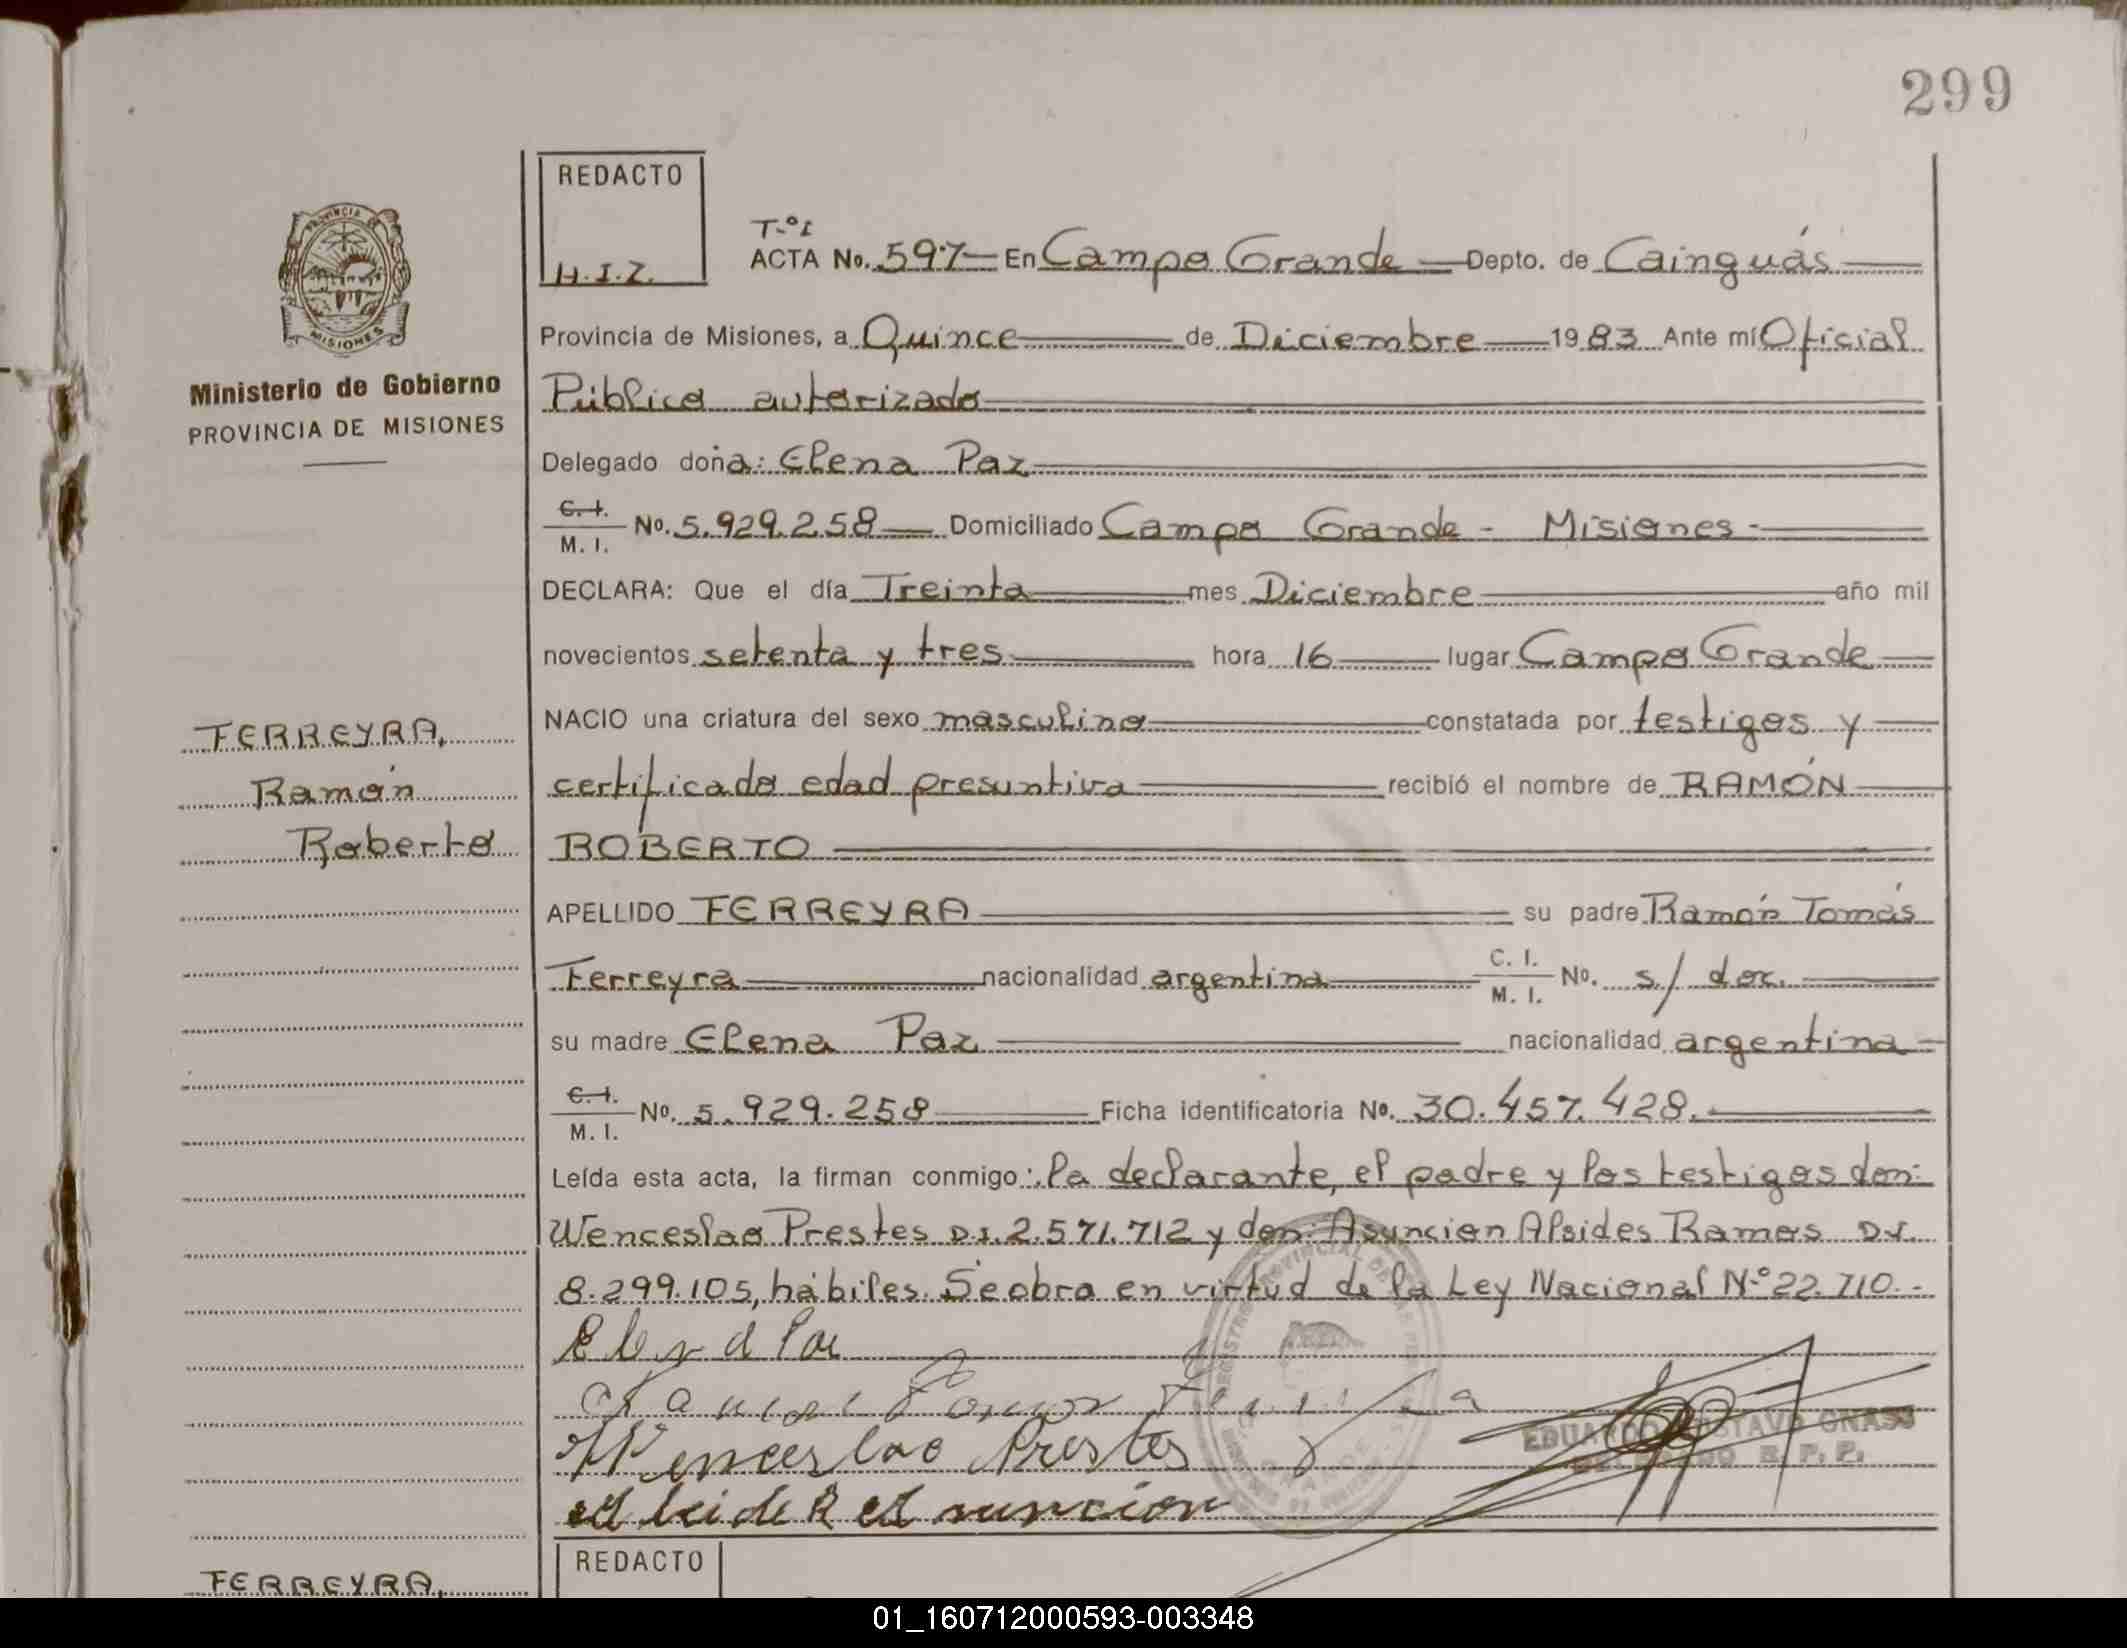 299
REDACTO
H.I.Z.
T.º I
ACTA No. 597 En Campo Grande Depto. de Cainguás
Provincia de Misiones, a Quince de Diciembre 1983 Ante mí Oficial
Público autorizado
Ministerio de Gobierno
PROVINCIA DE MISIONES
Delegado doña: Elena Paz
C. I. M. I. No. 5.929.258 Domiciliado Campo Grande - Misiones -
DECLARA: Que el día Treinta mes Diciembre año mil
novecientos setenta y tres hora 16 lugar Campo Grande
FERREYRA,
Ramón
Roberto
NACIO una criatura del sexo masculino constatada por testigos y
certificado edad presuntiva recibió el nombre de RAMÓN
ROBERTO
APELLIDO FERREYRA su padre Ramón Tomás
Ferreyra nacionalidad argentina C. I. M. I. No. s/ doc.
su madre Elena Paz nacionalidad argentina
C. I. M. I. No. 5.929.258 Ficha identificatoria No. 30.457.428.
Leída esta acta, la firman conmigo: la declarante, el padre y los testigos don:
Wenceslao Prestes D.I. 2.571.712 y don: Asuncion Alsides Ramos D.I.
8.299.105, hábiles. Se obra en virtud de la Ley Nacional N.º 22.710.-
Elena Paz
Wenceslao Prestes
EDUARDO GUSTAVO GNASS
DELEGADO R. P. P.
REDACTO
FERREYRA,
01_160712000593-003348